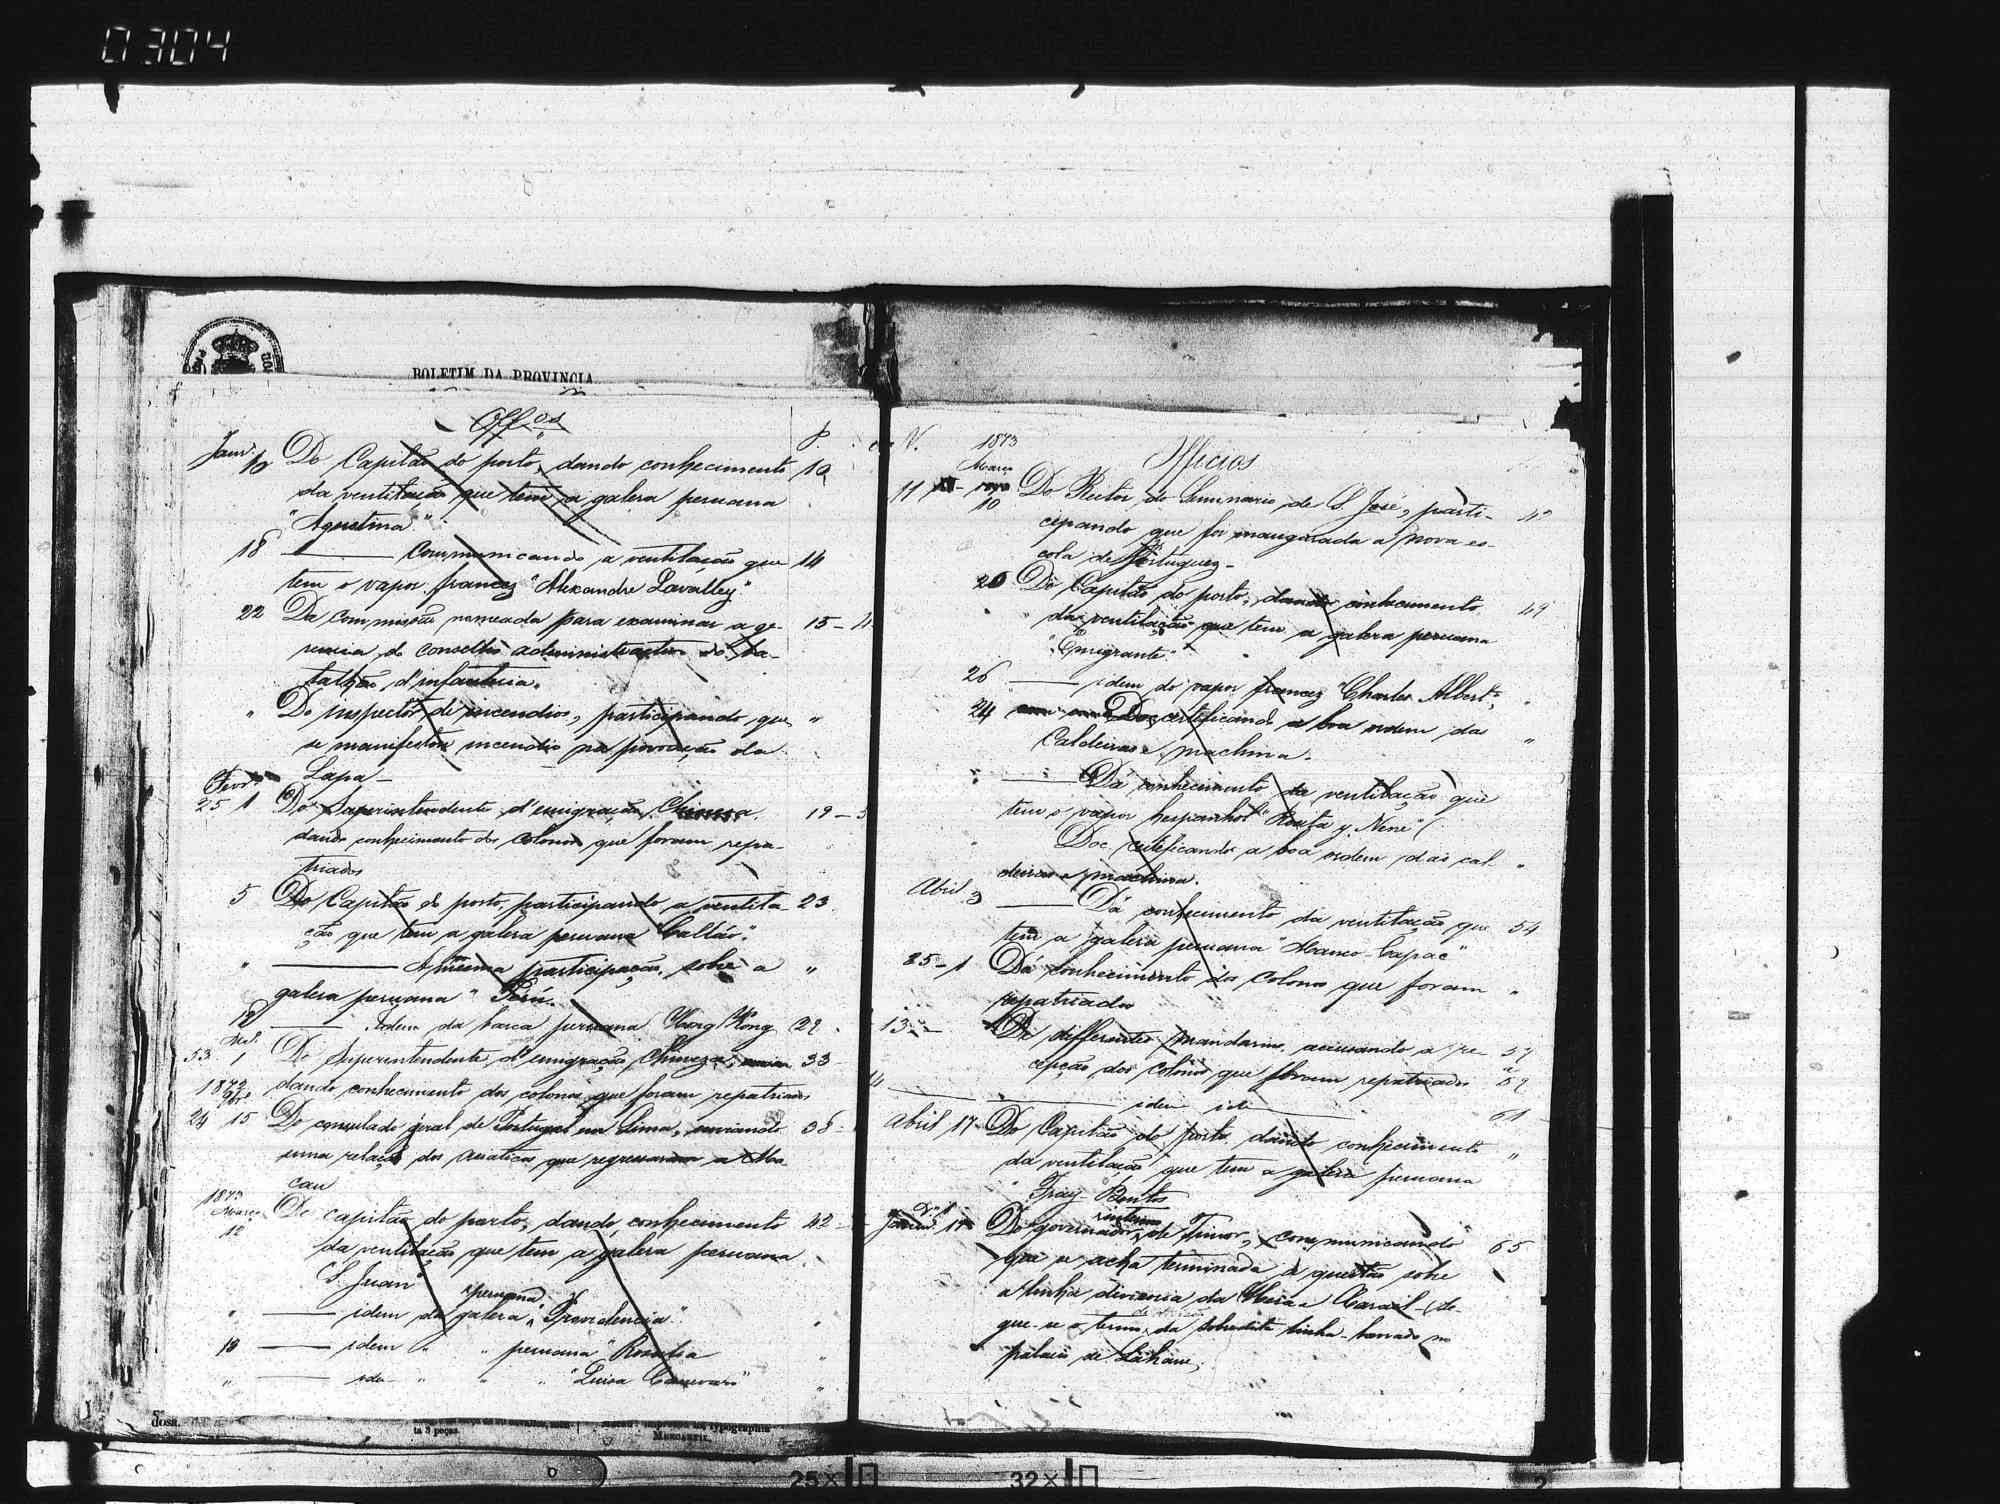 0304
BOLETIM DA PROVINCIA
Off.os
P.
Janr. 10 Do Capitão do porto, dando conhecimento 10
da ventilação que tem a galera peruana
"Agustina"
18 — Communicando a ventilação que 14
tem o vapor francez "Alexandre Lavalley"
22 Da Commissão nomeada para examinar a ge- 15 - 4
rencia do conselho administrativo do ba-
talhão d'infanteria.
" Do inspector de incendios, participando que "
se manifestou incendio na povoação da
Lapa —
Fevr.
25 1 Do Superintendente d'emigração Chineza 19 -
dando conhecimento dos colonos que foram repa-
triados
5 Do Capitão do porto, participando a ventila- 23
ção que tem a galera peruana "Callão".
" — A mesma participação, sobre a "
galera peruana "Perú".
— Idem da barca peruana Hong Kong 29
53 1 Do Superintendente d'emigração Chineza, 33
dando conhecimento dos colonos que foram repatriados
1872
24 15 Do consulado geral de Portugal em Lima, enviando 38
uma relação dos asiaticos que regressaram a Ma-
cau
1873
Março
12 Do capitão do porto, dando conhecimento 42
da ventilação que tem a galera peruana
"S. Juan"
" — idem da galera peruana "Providencia" "
13 — idem " " peruana "Rosalia "
" — ide " " " "Luisa Canevaro" "
dosa.
ta 3 peças.
typographia
Mercantil.
N. 1873
Officios
Março
11 10 Do Reitor do Seminario de S. José, parti- 49
cipando que foi inaugurada a nova es-
cola de Portuguez —
20 Do Capitão do porto, dando conhecimento 49
da ventilação que tem a galera peruana
"Emigrante"
26 — idem do vapor francez "Charles Albert", "
24 Doc. certificando a boa ordem das "
Caldeiras e machina.
" — Dá conhecimento da ventilação que
tem o vapor hespanhol "Rosita y Nene"
" Doc. certificando a boa ordem das cal- "
deiras e machina.
Abril 3 — Dá conhecimento da ventilação que 54
tem a galera peruana "Manco-Capac"
25 - 1 Dá conhecimento dos colonos que foram "
repatriados
13 De differentes mandarins, accusando a re- 57
cepção dos colonos que foram repatriados a 59
14 — idem ide — 61
Abril 17 Do Capitão do porto, dando conhecimento "
da ventilação que tem a galera peruana
" Fray Bentos
Do governador interino de Timor, communicando 65
que se acha terminada a questão sobre
a linha divisoria da
que-se o termo da sobredita linha lavrado no
palacio de Lahane.
25× 32×
2